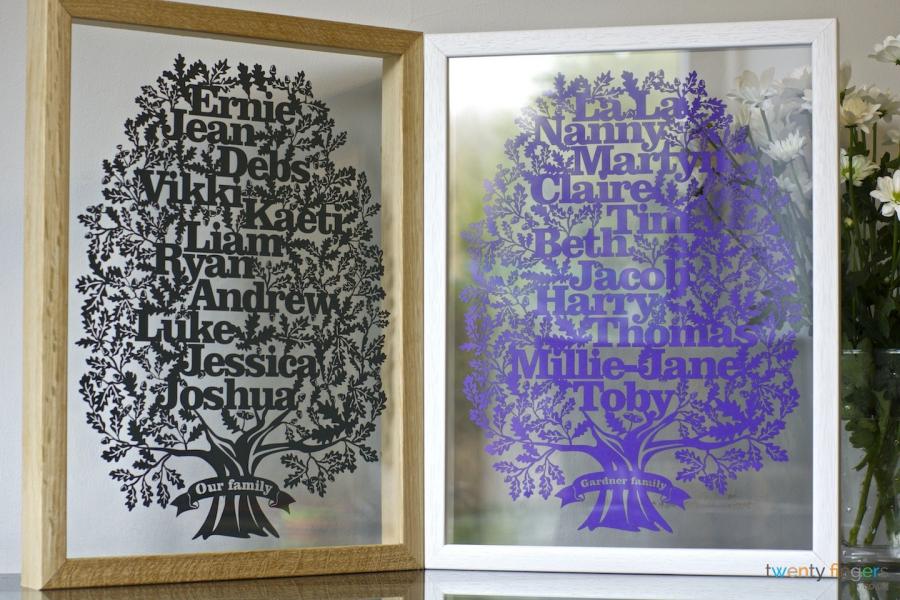 Ernie
Jean
Debs
Vikki
Kaeti
Liam
Ryan
Andrew
Luke
Jessica
Joshua
Our family
La La
Nanny
Martyn
Claire
Tim
Beth
Jacob
Harry
Thomas
Millie-Jane
Toby
Gardner family
twenty fingers